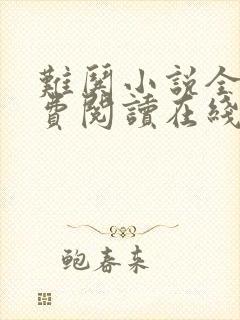 難哭小説全
費閱讀在綫
鲍春来